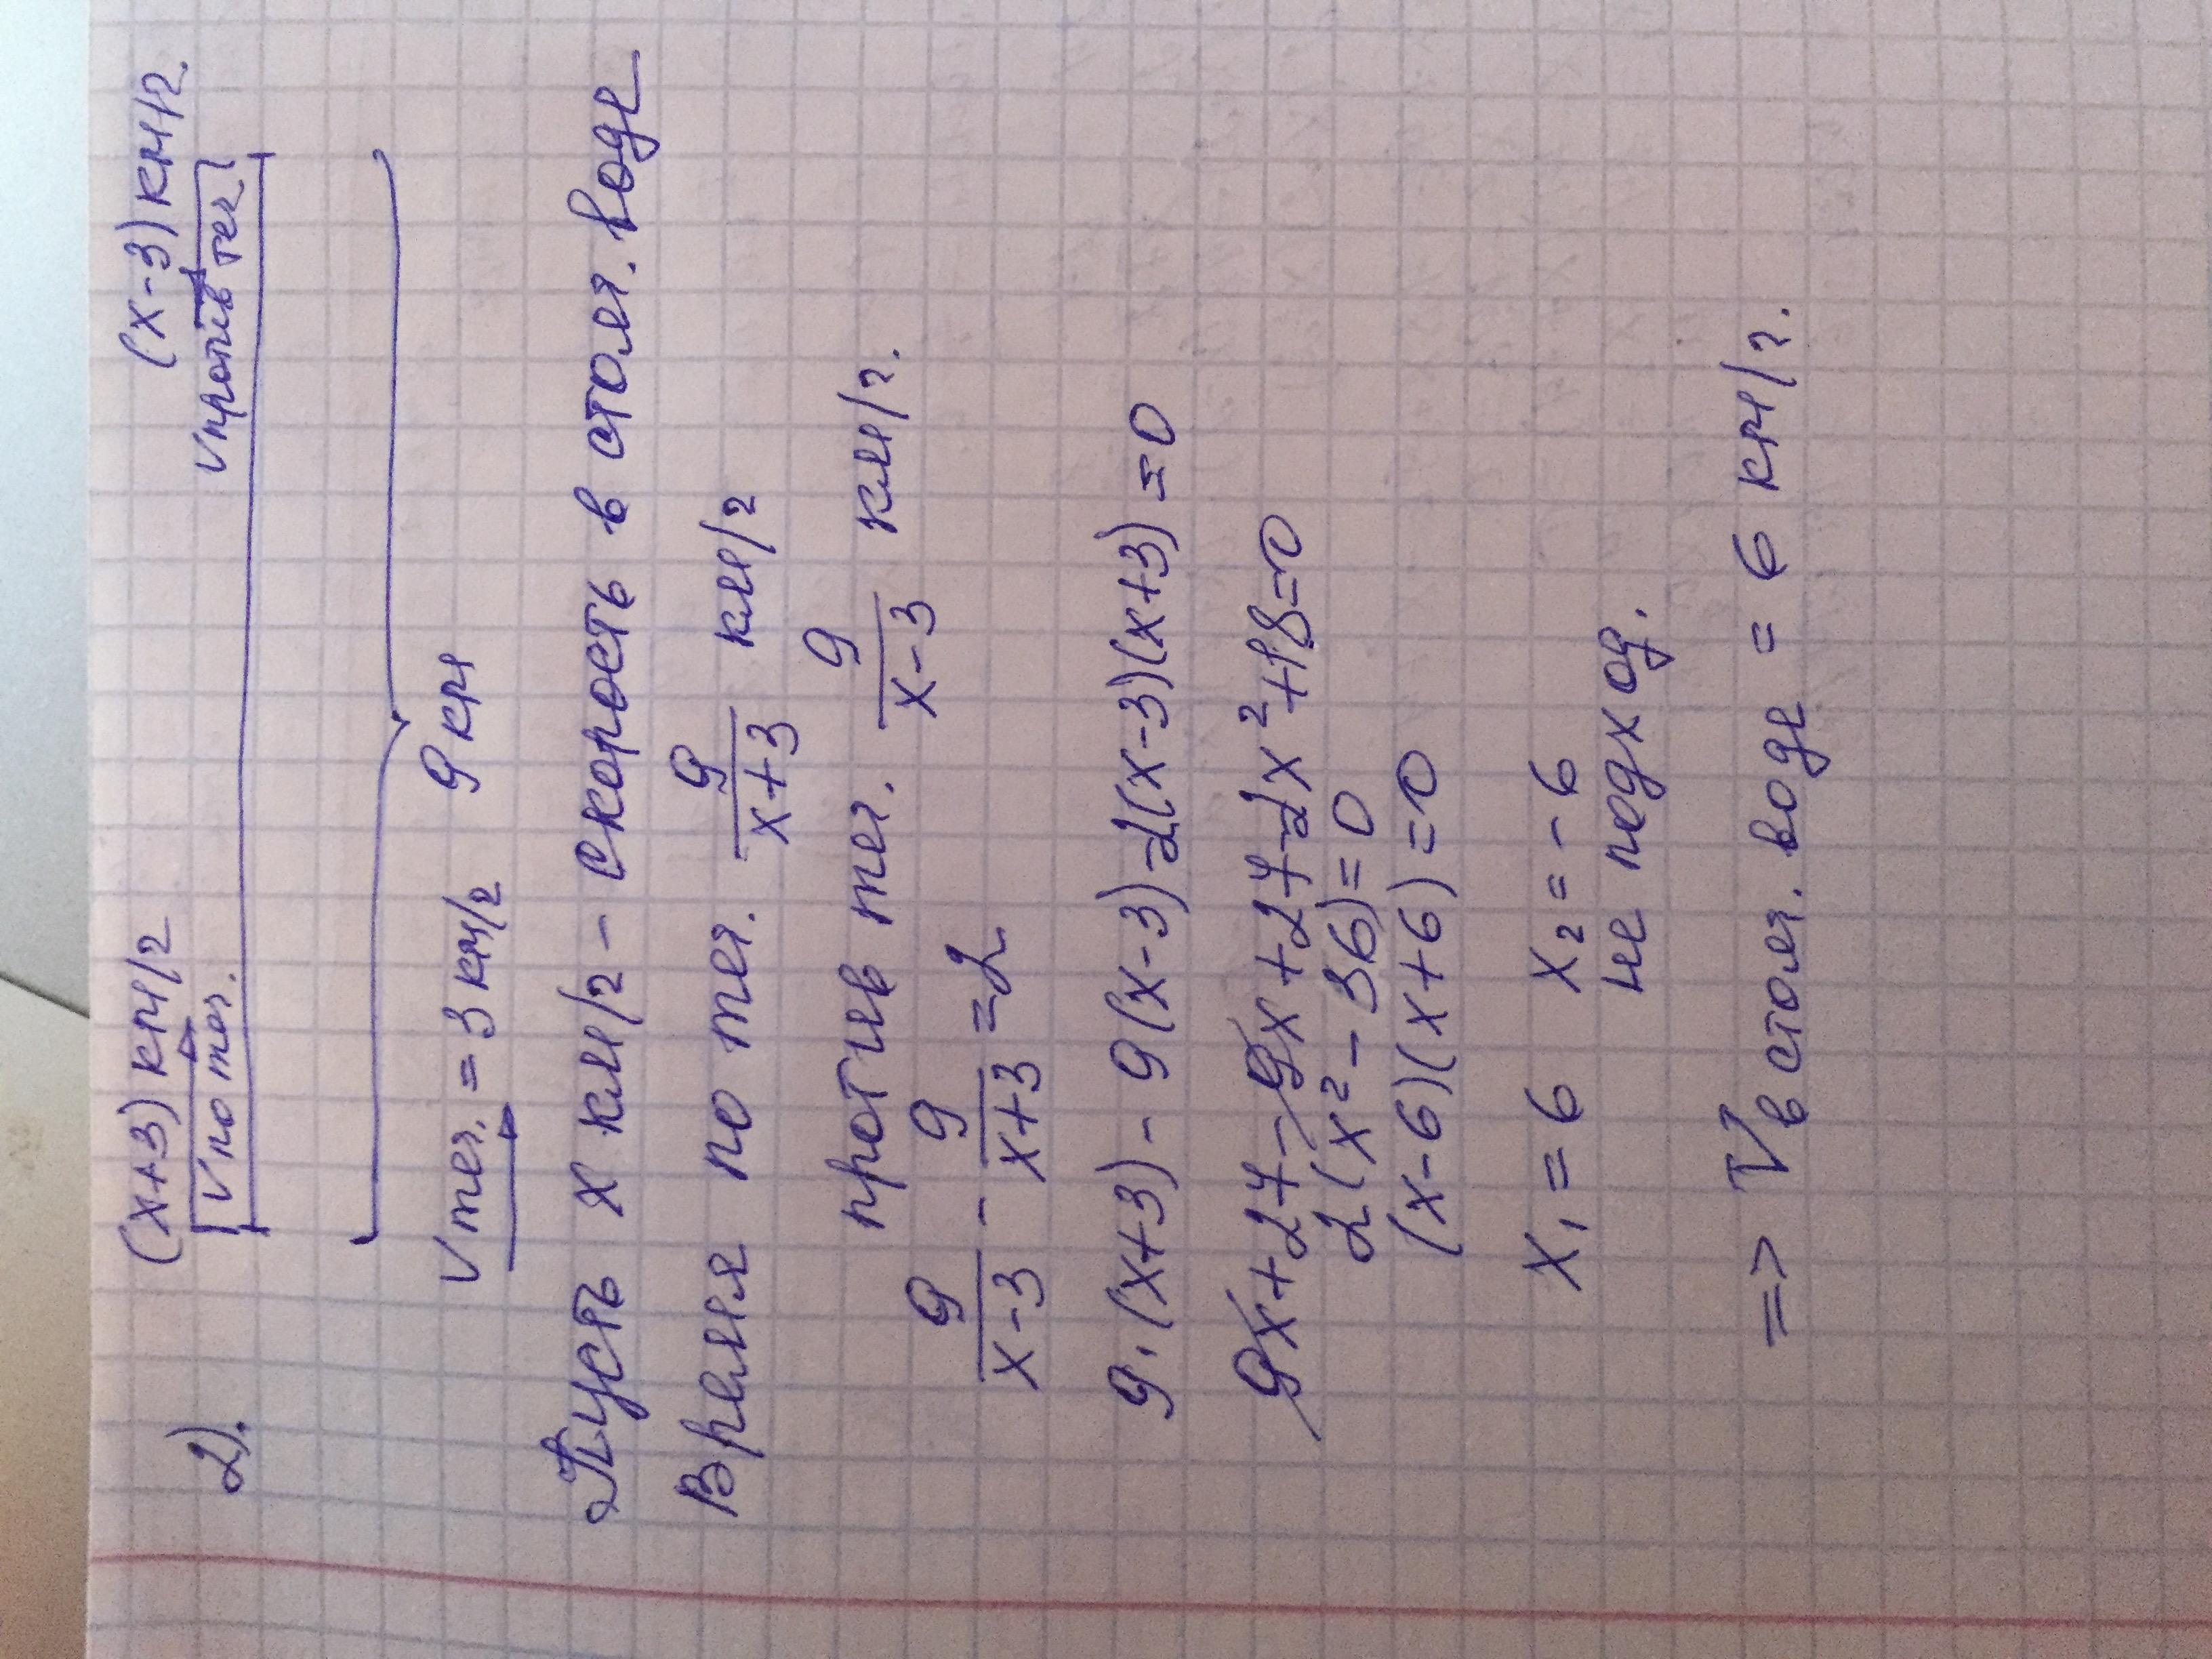 2). (x+3) км/г (x-3) км/г.
Vпо теч. Vпротив теч
Vтеч. = 3 км/г 9 км
Пусть x км/г - скорость в стоя. воде
Время по теч. 9/(x+3) км/г
против теч. 9/(x-3) км/г.
9/(x-3) - 9/(x+3) = 2
9·(x+3) - 9(x-3) - 2(x-3)(x+3) = 0
9x+27-9x+27-2x²+18=0
2(x²-36)=0
(x-6)(x+6)=0
x₁ = 6 x₂ = -6
не подход.
=> Vв стоя. воде = 6 км/г.